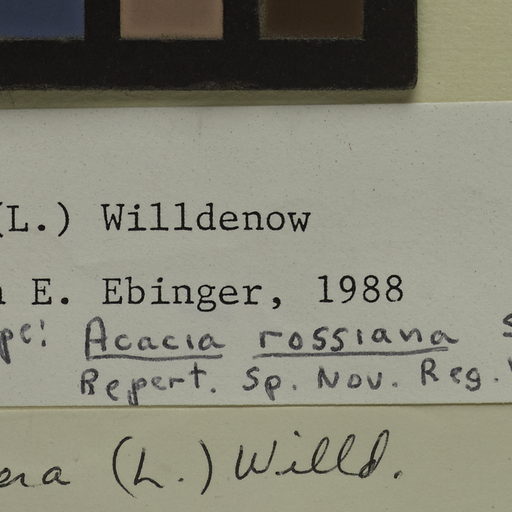 (L.) Willdenow
E. Ebinger, 1988
Acacia rossiana
Repert. Sp. Nov. Reg.
(L.) Willd.